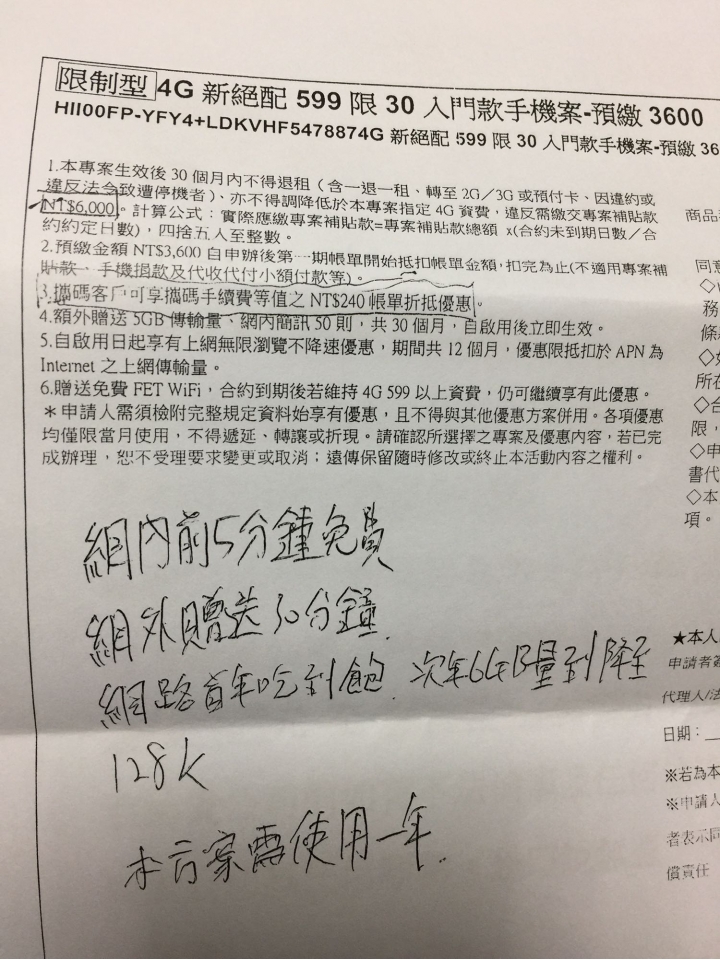 限制型 4G 新絕配 599 限 30 入門款手機案-預繳 3600
HII00FP-YFY4+LDKVHF5478874G 新絕配 599 限 30 入門款手機案-預繳 36
1.本專案生效後 30 個月內不得退租（含一退一租、轉至 2G／3G 或預付卡、因違約或
違反法令致遭停機者）、亦不得調降低於本專案指定 4G 資費，違反需繳交專案補貼款
NT$6,000。計算公式：實際應繳專案補貼款=專案補貼款總額 x(合約未到期日數／合
約約定日數)，四捨五人至整數。
2.預繳金額 NT$3,600 自申辦後第一期帳單開始抵扣帳單金額，扣完為止(不適用專案補
貼款、手機捐款及代收代付小額付款等)。
3.攜碼客戶可享攜碼手續費等值之 NT$240 帳單折抵優惠。
4.額外贈送 5GB 傳輸量、網內簡訊 50 則，共 30 個月，自啟用後立即生效。
5.自啟用日起享有上網無限瀏覽不降速優惠，期間共 12 個月，優惠限抵扣於 APN 為
Internet 之上網傳輸量。
6.贈送免費 FET WiFi，合約到期後若維持 4G 599 以上資費，仍可繼續享有此優惠。
＊申請人需須檢附完整規定資料始享有優惠，且不得與其他優惠方案併用。各項優惠
均僅限當月使用，不得遞延、轉讓或折現。請確認所選擇之專案及優惠內容，若已完
成辦理，恕不受理要求變更或取消；遠傳保留隨時修改或終止本活動內容之權利。
網內前5分鐘免費
網外贈送30分鐘
網路首年吃到飽. 次年6GB量到降至
128K
本方案需使用一年.
商品
同意
務
條
◇如
所在
◇合
限，
◇申
書代
◇本
項。
★本人
申請者簽
代理人/法
日期：＿
※若為本
※申請人
者表示同
償責任